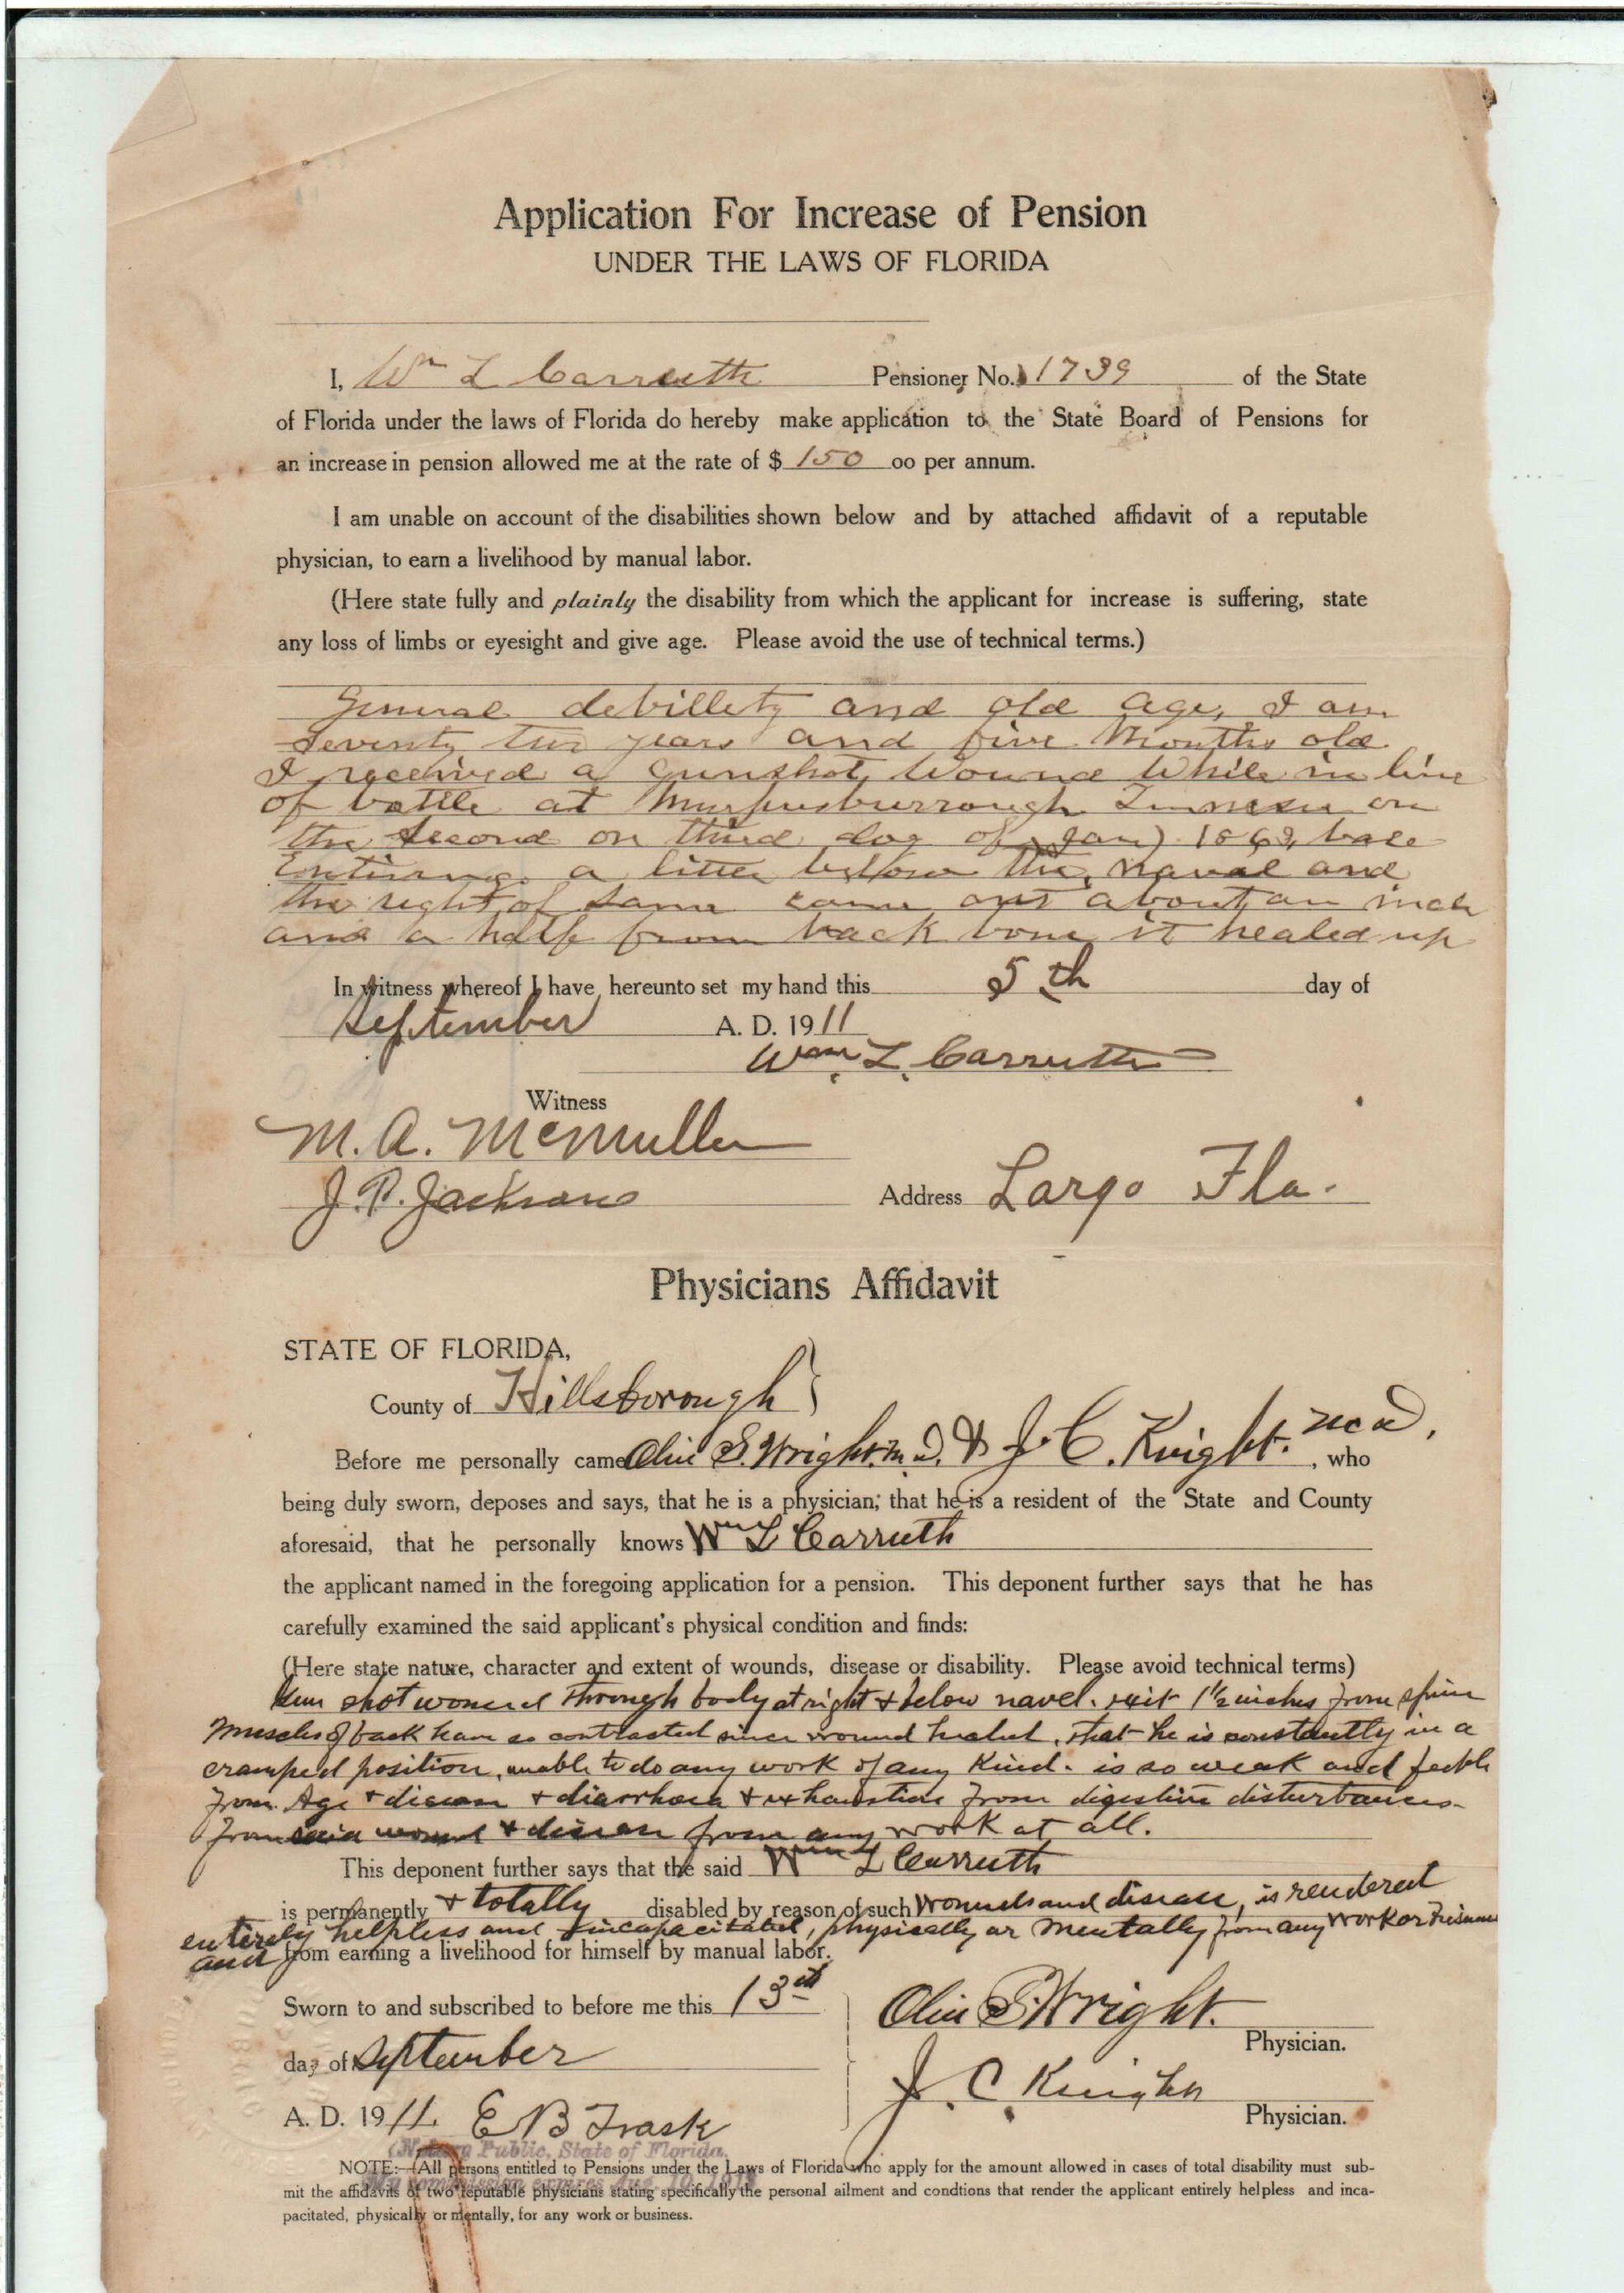 Application For Increase of Pension
UNDER THE LAWS OF FLORIDA
I, Wm L Carruth Pensioner No. 1739 of the State
of Florida under the laws of Florida do hereby make application to the State Board of Pensions for
an increase in pension allowed me at the rate of $ 150 oo per annum.
I am unable on account of the disabilities shown below and by attached affidavit of a reputable
physician, to earn a livelihood by manual labor.
(Here state fully and plainly the disability from which the applicant for increase is suffering, state
any loss of limbs or eyesight and give age. Please avoid the use of technical terms.)
General debillety and old age, I am
seventy two years and five Months old
I received a gunshot wound while in line
of battle at on
the second or third day of Jan) 1863, ball
entering a little below the naval and
the right of same came out about an inch
and a half from back bone it healed up
In witness whereof I have hereunto set my hand this 5th day of
September A. D. 1911
Wm. L. Carruth
Witness
M. A. McMullen
J. P. Jackson
Address Largo Fla.
Physicians Affidavit
STATE OF FLORIDA,
County of Hillsborough }
Before me personally came Olin S. Wright. M.D. & J. C. Knight. M.D., who
being duly sworn, deposes and says, that he is a physician; that he is a resident of the State and County
aforesaid, that he personally knows Wm L Carruth
the applicant named in the foregoing application for a pension. This deponent further says that he has
carefully examined the said applicant's physical condition and finds:
(Here state nature, character and extent of wounds, disease or disability. Please avoid technical terms)
Gun shot wound through body at right & below navel. exit 1½ inches from spine
Muscles of back have so contracted since wound healed, that he is constantly in a
cramped position, unable to do any work of any Kind. is so weak and feeble
from Age & disease & diarrhoea & exhaustion from digestive disturbances
from said wound & disease from any work at all.
This deponent further says that the said Wm L Carruth
is permanently & totally disabled by reason of such wounds and disease, is rendered
entirely helpless and incapacitated, physically or mentally from any work or Business
and from earning a livelihood for himself by manual labor.
Sworn to and subscribed to before me this 13th
day of September
A. D. 1911. E B Trask
Olin S. Wright.
Physician.
J. C. Knight
Physician.
Notary Public, State of Florida.
My commission expires Aug. 10, 191
NOTE:—(All persons entitled to Pensions under the Laws of Florida who apply for the amount allowed in cases of total disability must sub-
mit the affidavits of two reputable physicians stating specifically the personal ailment and condtions that render the applicant entirely helpless and inca-
pacitated, physically or mentally, for any work or business.